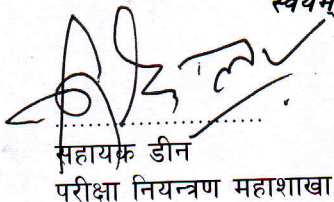 स्वयम्
सहायक डीन
परीक्षा नियन्त्रण महाशाखा